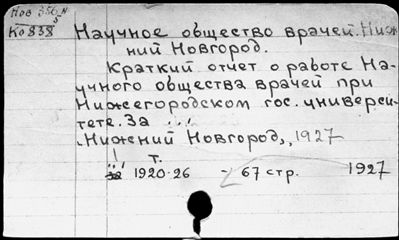 Нов 350
Ко 838
Научное общество врачей. Ниж-
ний Новгород.
Краткий отчет о работе На-
учного общества врачей при
Нижегородском гос. универси-
тете. За ...
Нижний Новгород, 1927
т.
за 1920-26 - 67 стр. 1927